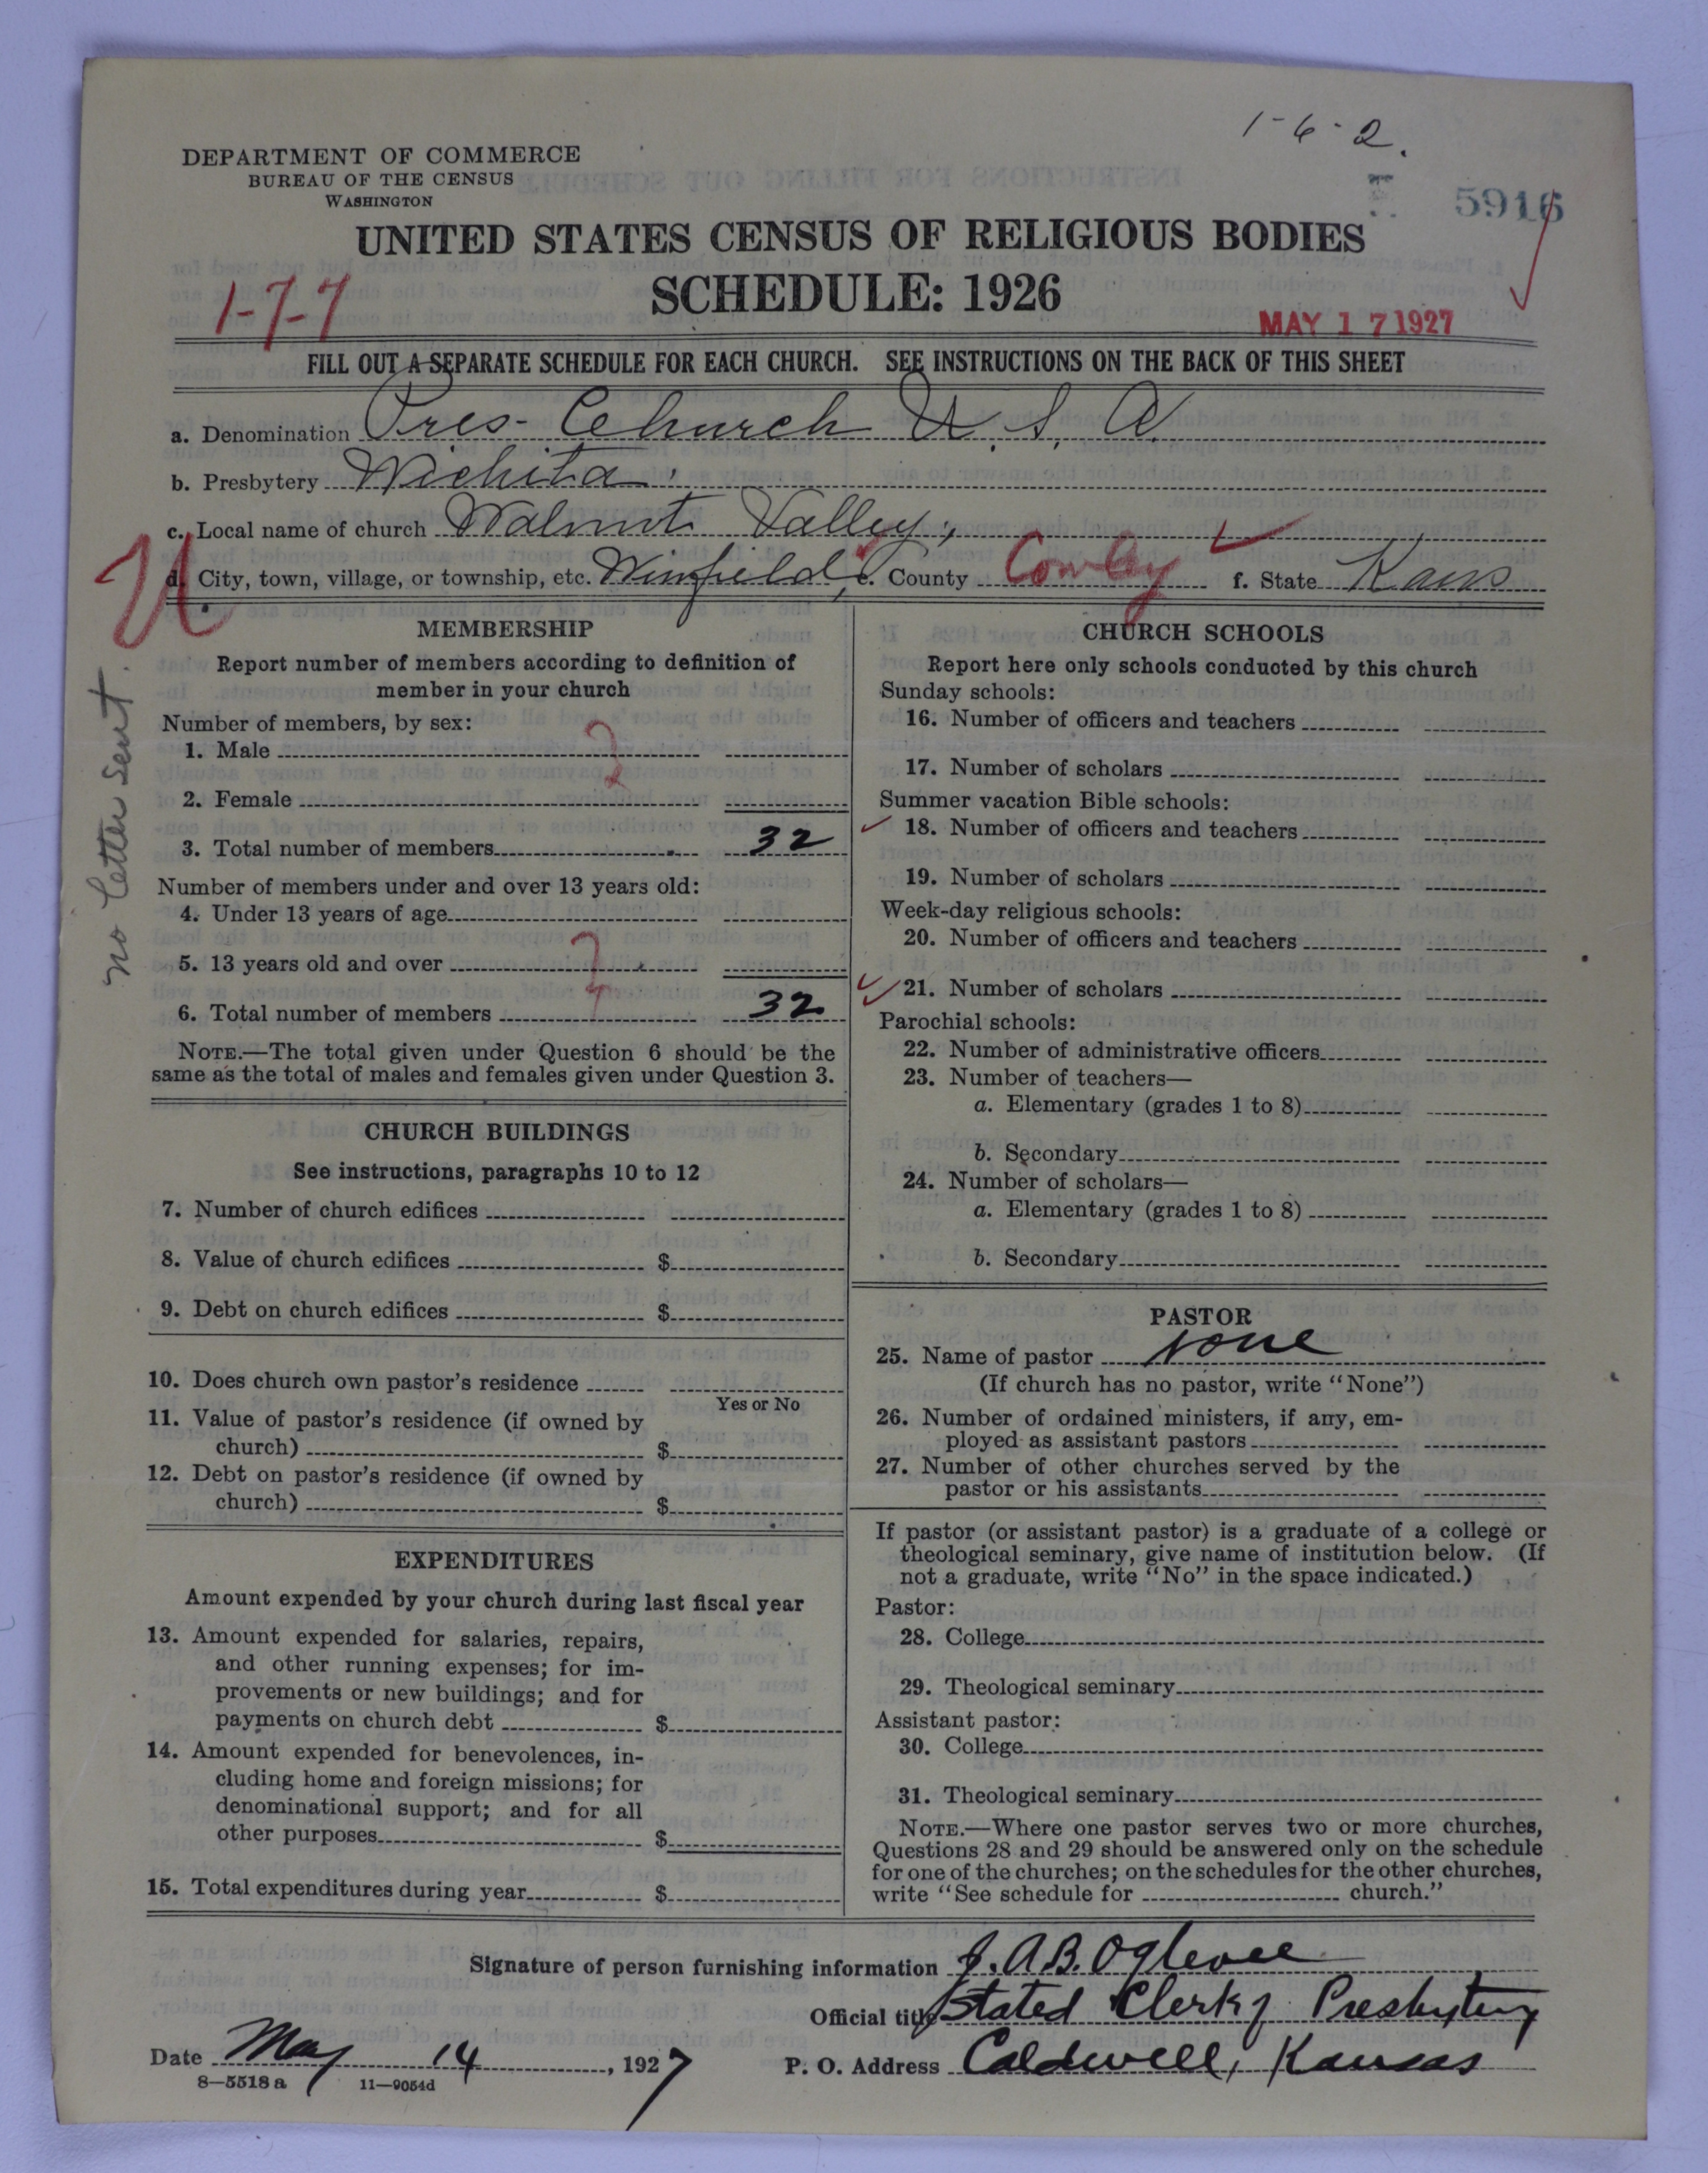 1-6-2.
DEPARTMENT OF COMMERCE
BUREAU OF THE CENSUS
WASHINGTON
5916
UNITED STATES CENSUS OF RELIGIOUS BODIES
SCHEDULE: 1926
1-7-7
MAY 17 1927
FILL OUT A SEPARATE SCHEDULE FOR EACH CHURCH. SEE INSTRUCTIONS ON THE BACK OF THIS SHEET
a. Denomination Pres- Church U. S. A.
b. Presbytery Wichita.
c. Local name of church Walnut Valley,
d. City, town, village, or township, etc. Winfield, e. County Cowley f. State Kans
no letter sent.
MEMBERSHIP
Report number of members according to definition of
member in your church
Number of members, by sex:
1. Male
2. Female
3. Total number of members 32
Number of members under and over 13 years old:
4. Under 13 years of age
5. 13 years old and over
6. Total number of members 32
NOTE.—The total given under Question 6 should be the
same as the total of males and females given under Question 3.
CHURCH BUILDINGS
See instructions, paragraphs 10 to 12
7. Number of church edifices
8. Value of church edifices $
9. Debt on church edifices $
10. Does church own pastor's residence
Yes or No
11. Value of pastor's residence (if owned by
church) $
12. Debt on pastor's residence (if owned by
church) $
EXPENDITURES
Amount expended by your church during last fiscal year
13. Amount expended for salaries, repairs,
and other running expenses; for im-
provements or new buildings; and for
payments on church debt $
14. Amount expended for benevolences, in-
cluding home and foreign missions; for
denominational support; and for all
other purposes $
15. Total expenditures during year $
CHURCH SCHOOLS
Report here only schools conducted by this church
Sunday schools:
16. Number of officers and teachers
17. Number of scholars
Summer vacation Bible schools:
18. Number of officers and teachers
19. Number of scholars
Week-day religious schools:
20. Number of officers and teachers
21. Number of scholars
Parochial schools:
22. Number of administrative officers
23. Number of teachers—
a. Elementary (grades 1 to 8)
b. Secondary
24. Number of scholars—
a. Elementary (grades 1 to 8)
b. Secondary
PASTOR
25. Name of pastor none
(If church has no pastor, write "None")
26. Number of ordained ministers, if any, em-
ployed as assistant pastors
27. Number of other churches served by the
pastor or his assistants
If pastor (or assistant pastor) is a graduate of a college or
theological seminary, give name of institution below. (If
not a graduate, write "No" in the space indicated.)
Pastor:
28. College
29. Theological seminary
Assistant pastor:
30. College
31. Theological seminary
NOTE.—Where one pastor serves two or more churches,
Questions 28 and 29 should be answered only on the schedule
for one of the churches; on the schedules for the other churches,
write "See schedule for church."
Signature of person furnishing information J. A. B. Oglevee
Official title Stated Clerk of Presbytery
Date May 14, 1927 P. O. Address Caldwell, Kansas
8—5518 a 11—9054d